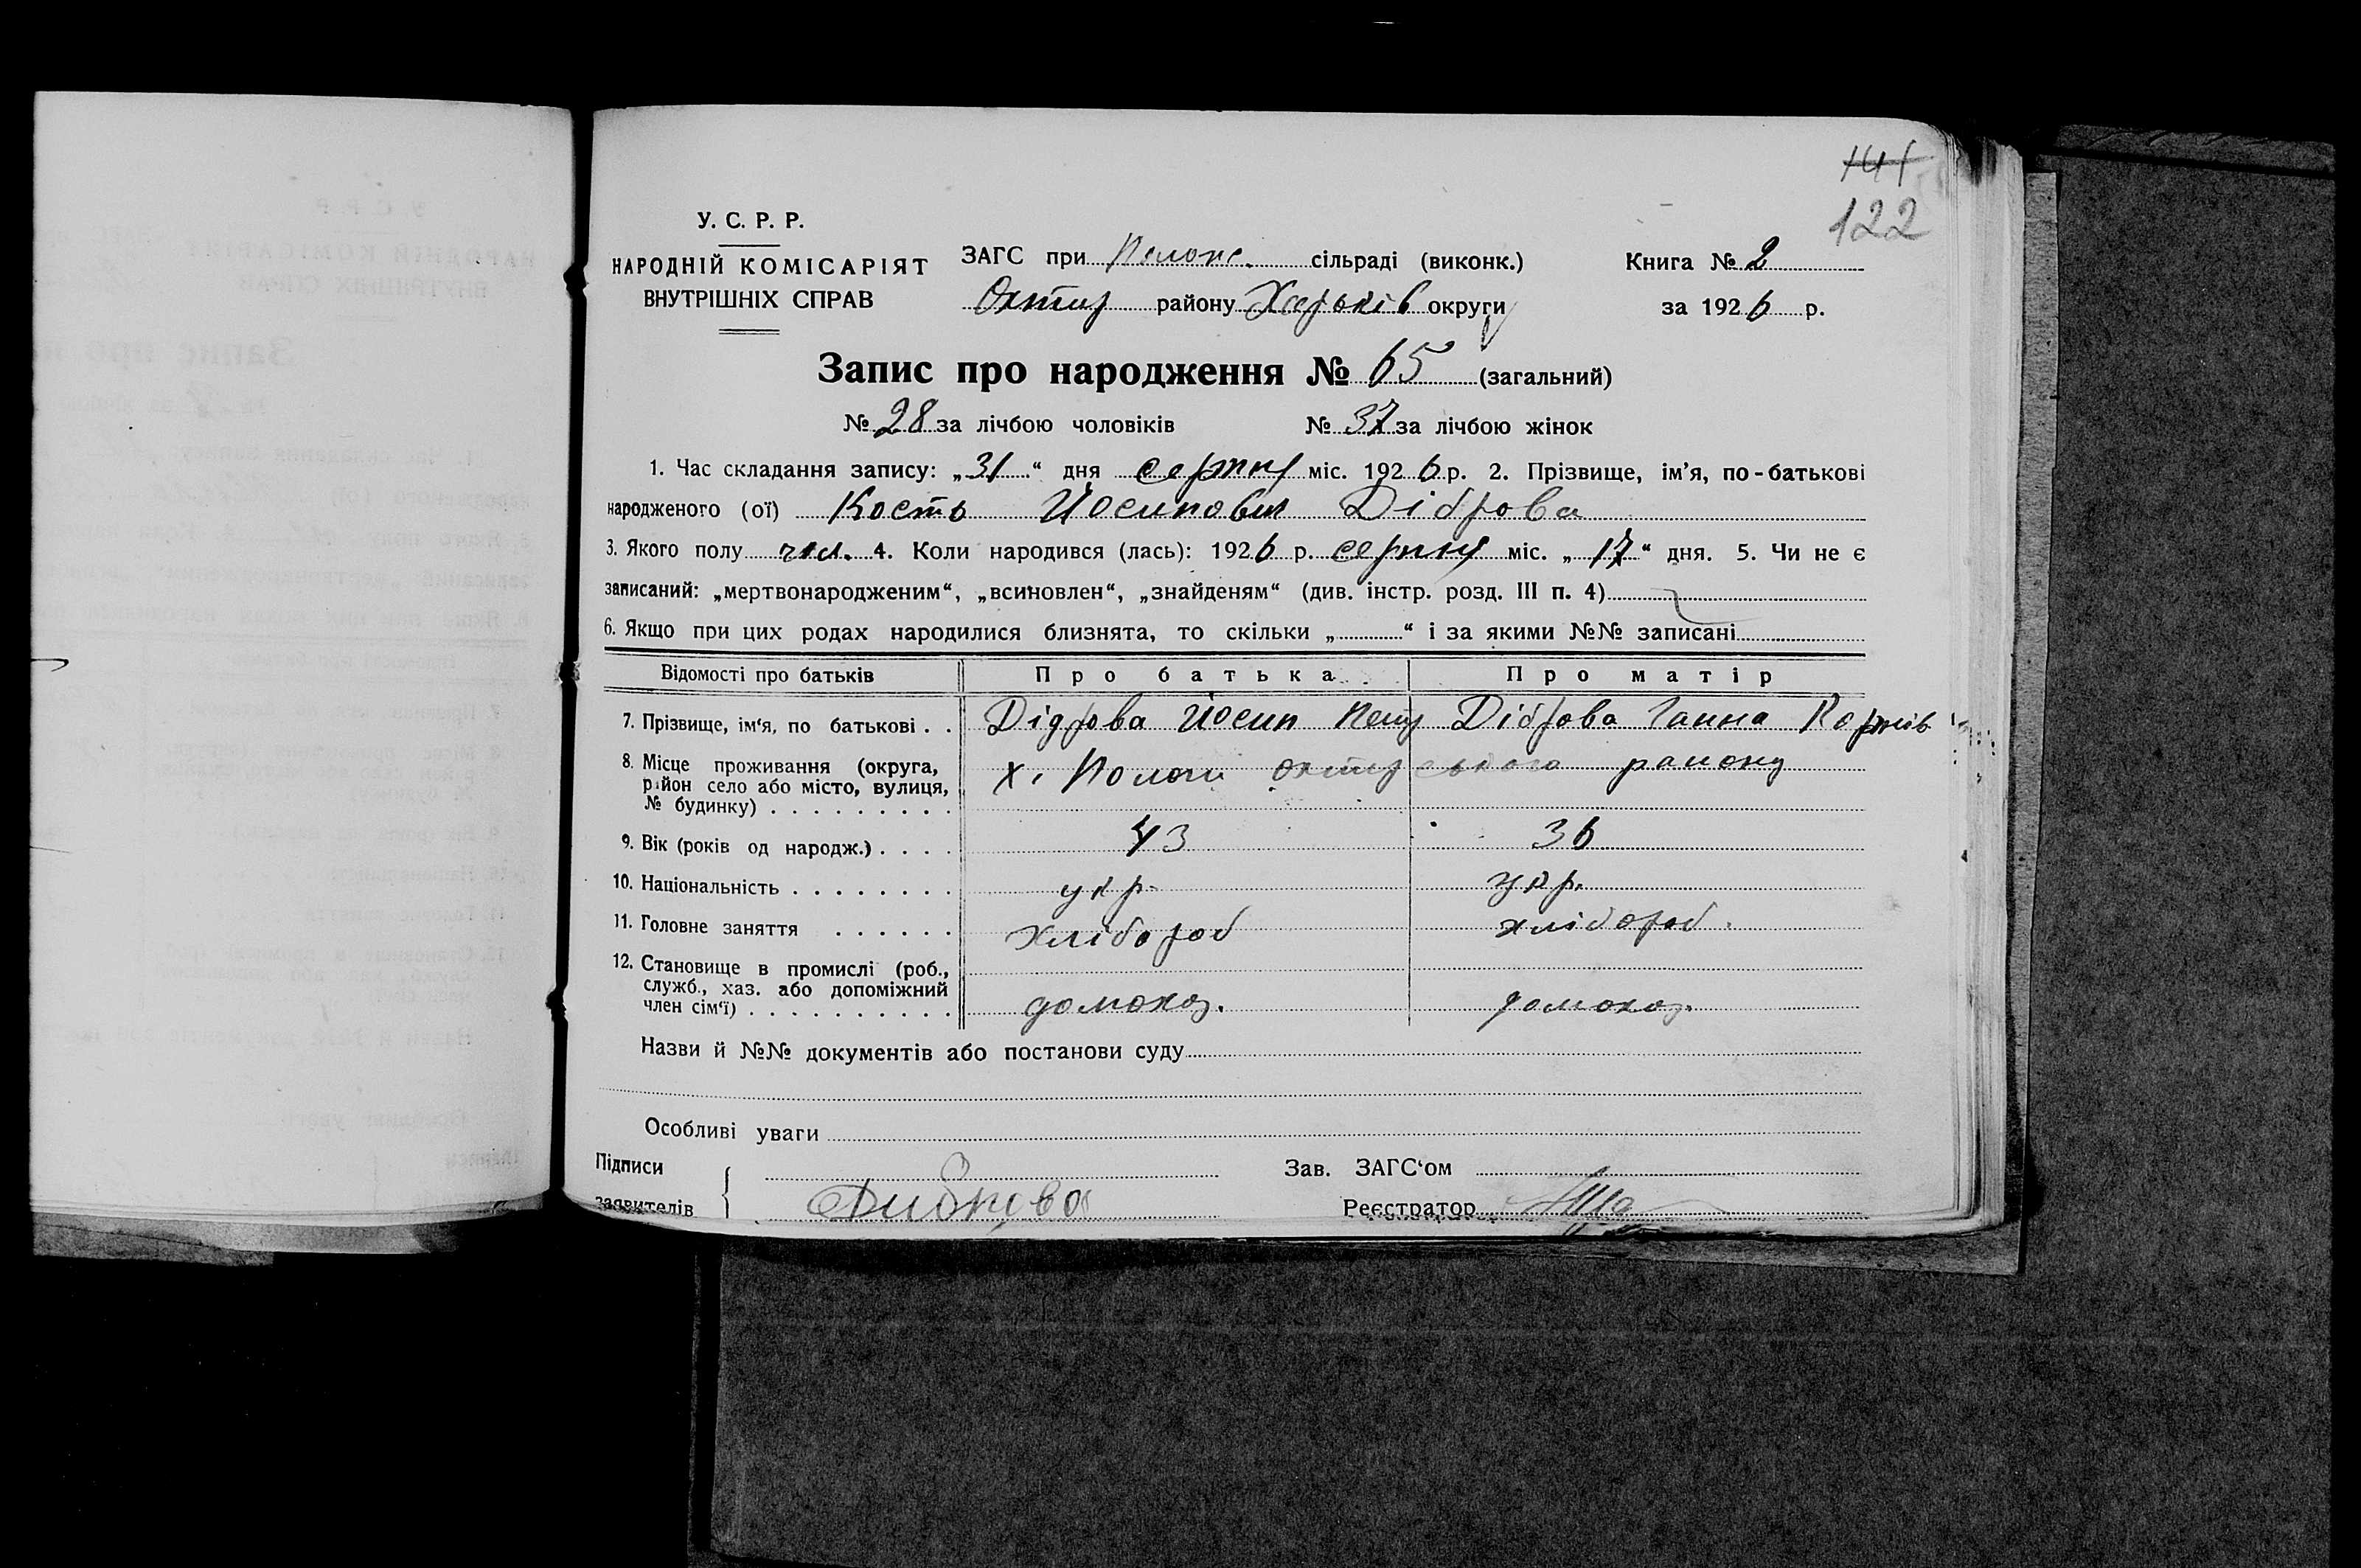 141
122
У. С. Р. Р.
НАРОДНІЙ КОМІСАРІЯТ
ВНУТРІШНІХ СПРАВ
ЗАГС при сільраді (виконк.)
Охтир району Харьків округи
Книга № 2
за 1926 р.
Запис про народження № 65 (загальний)
№ 28 за лічбою чоловіків № 37 за лічбою жінок
1. Час складання запису: „31“ дня серпня міс. 1926 р. 2. Прізвище, ім’я, по-батькові
народженого (ої) Кость Йосипович Діброва
3. Якого полу чол. 4. Коли народився (лась): 1926 р. серпня міс. „17“ дня. 5. Чи не є
записаний: „мертвонародженим“, „всиновлен“, „знайденям“ (див. інстр. розд. III п. 4)
6. Якщо при цих родах народилися близнята, то скільки „ “ і за якими №№ записані
Відомості про батьків Про батька Про матір
7. Прізвище, ім‘я, по батькові . . Дідрова Йосип Петр Діброва Ганна Корнів
8. Місце проживання (округа, х. Пологи охтирського району
район село або місто, вулиця,
№ будинку) . . . . . . . . .
9. Вік (років од народж.) . . . . 43 36
10. Національність . . . . . . . . укр. укр.
11. Головне заняття . . . . . . хлібороб хлібороб.
12. Становище в промислі (роб.,
служб., хаз. або допоміжний
член сім‘ї) . . . . . . . . . . домохаз. домохаз.
Назви й №№ документів або постанови суду
Особливі уваги
Підписи
заявителів Диброва
Зав. ЗАГС‘ом
Реєстратор